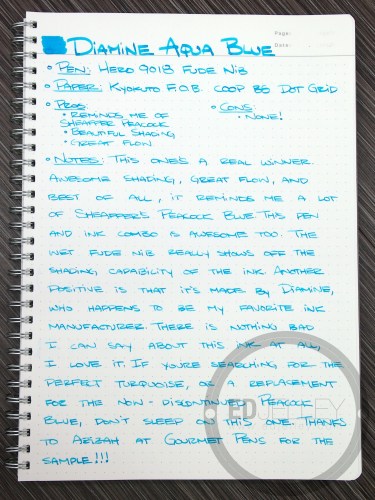 Page:
DIAMINE AQUA BLUE
Date:
• PEN: HERO 9018 FUDE NIB
• PAPER: KYOKUTO F.O.B. COOP B5 DOT GRID
• PROS:
• REMINDS ME OF SHEAFFER PEACOCK
• BEAUTIFUL SHADING
• GREAT FLOW
• CONS:
• NONE!
• NOTES: THIS ONE'S A REAL WINNER.
AWESOME SHADING, GREAT FLOW, AND
BEST OF ALL, IT REMINDS ME A LOT
OF SHEAFFER'S PEACOCK BLUE. THIS PEN
AND INK COMBO IS AWESOME TOO. THE
WET FUDE NIB REALLY SHOWS OFF THE
SHADING CAPABILITY OF THE INK. ANOTHER
POSITIVE IS THAT IT'S MADE BY DIAMINE,
WHO HAPPENS TO BE MY FAVORITE INK
MANUFACTURER. THERE IS NOTHING BAD
I CAN SAY ABOUT THIS INK AT ALL,
I LOVE IT. IF YOU'RE SEARCHING FOR THE
PERFECT TURQUOISE, OR A REPLACEMENT
FOR THE NOW-DISCONTINUED PEACOCK
BLUE, DON'T SLEEP ON THIS ONE. THANKS
TO AZIZAH AT GOURMET PENS FOR THE
SAMPLE!!!
ED JELLEY